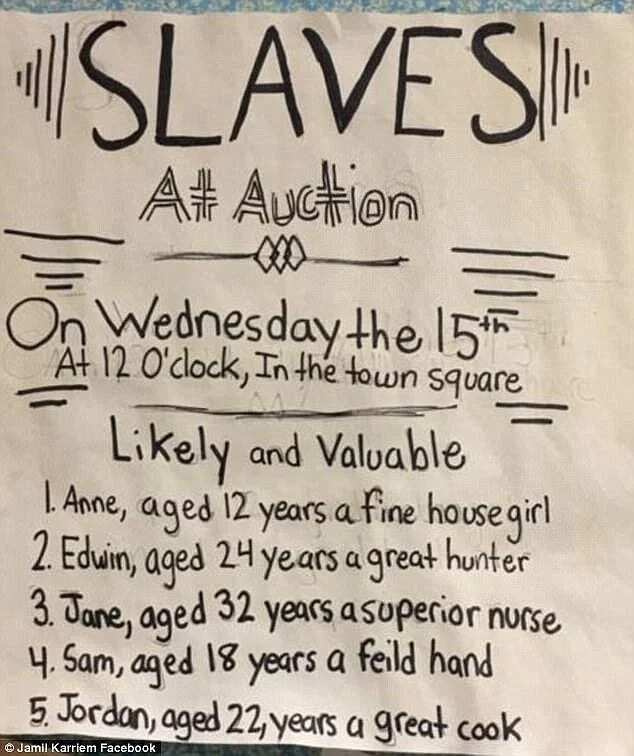 SLAVES
At Auction
On Wednesday the 15th
At 12 O'clock, In the town square
Likely and Valuable
1. Anne, aged 12 years a fine house girl
2. Edwin, aged 24 years a great hunter
3. Jane, aged 32 years a superior nurse
4. Sam, aged 18 years a feild hand
5. Jordan, aged 22, years a great cook
© Jamil Karriem Facebook